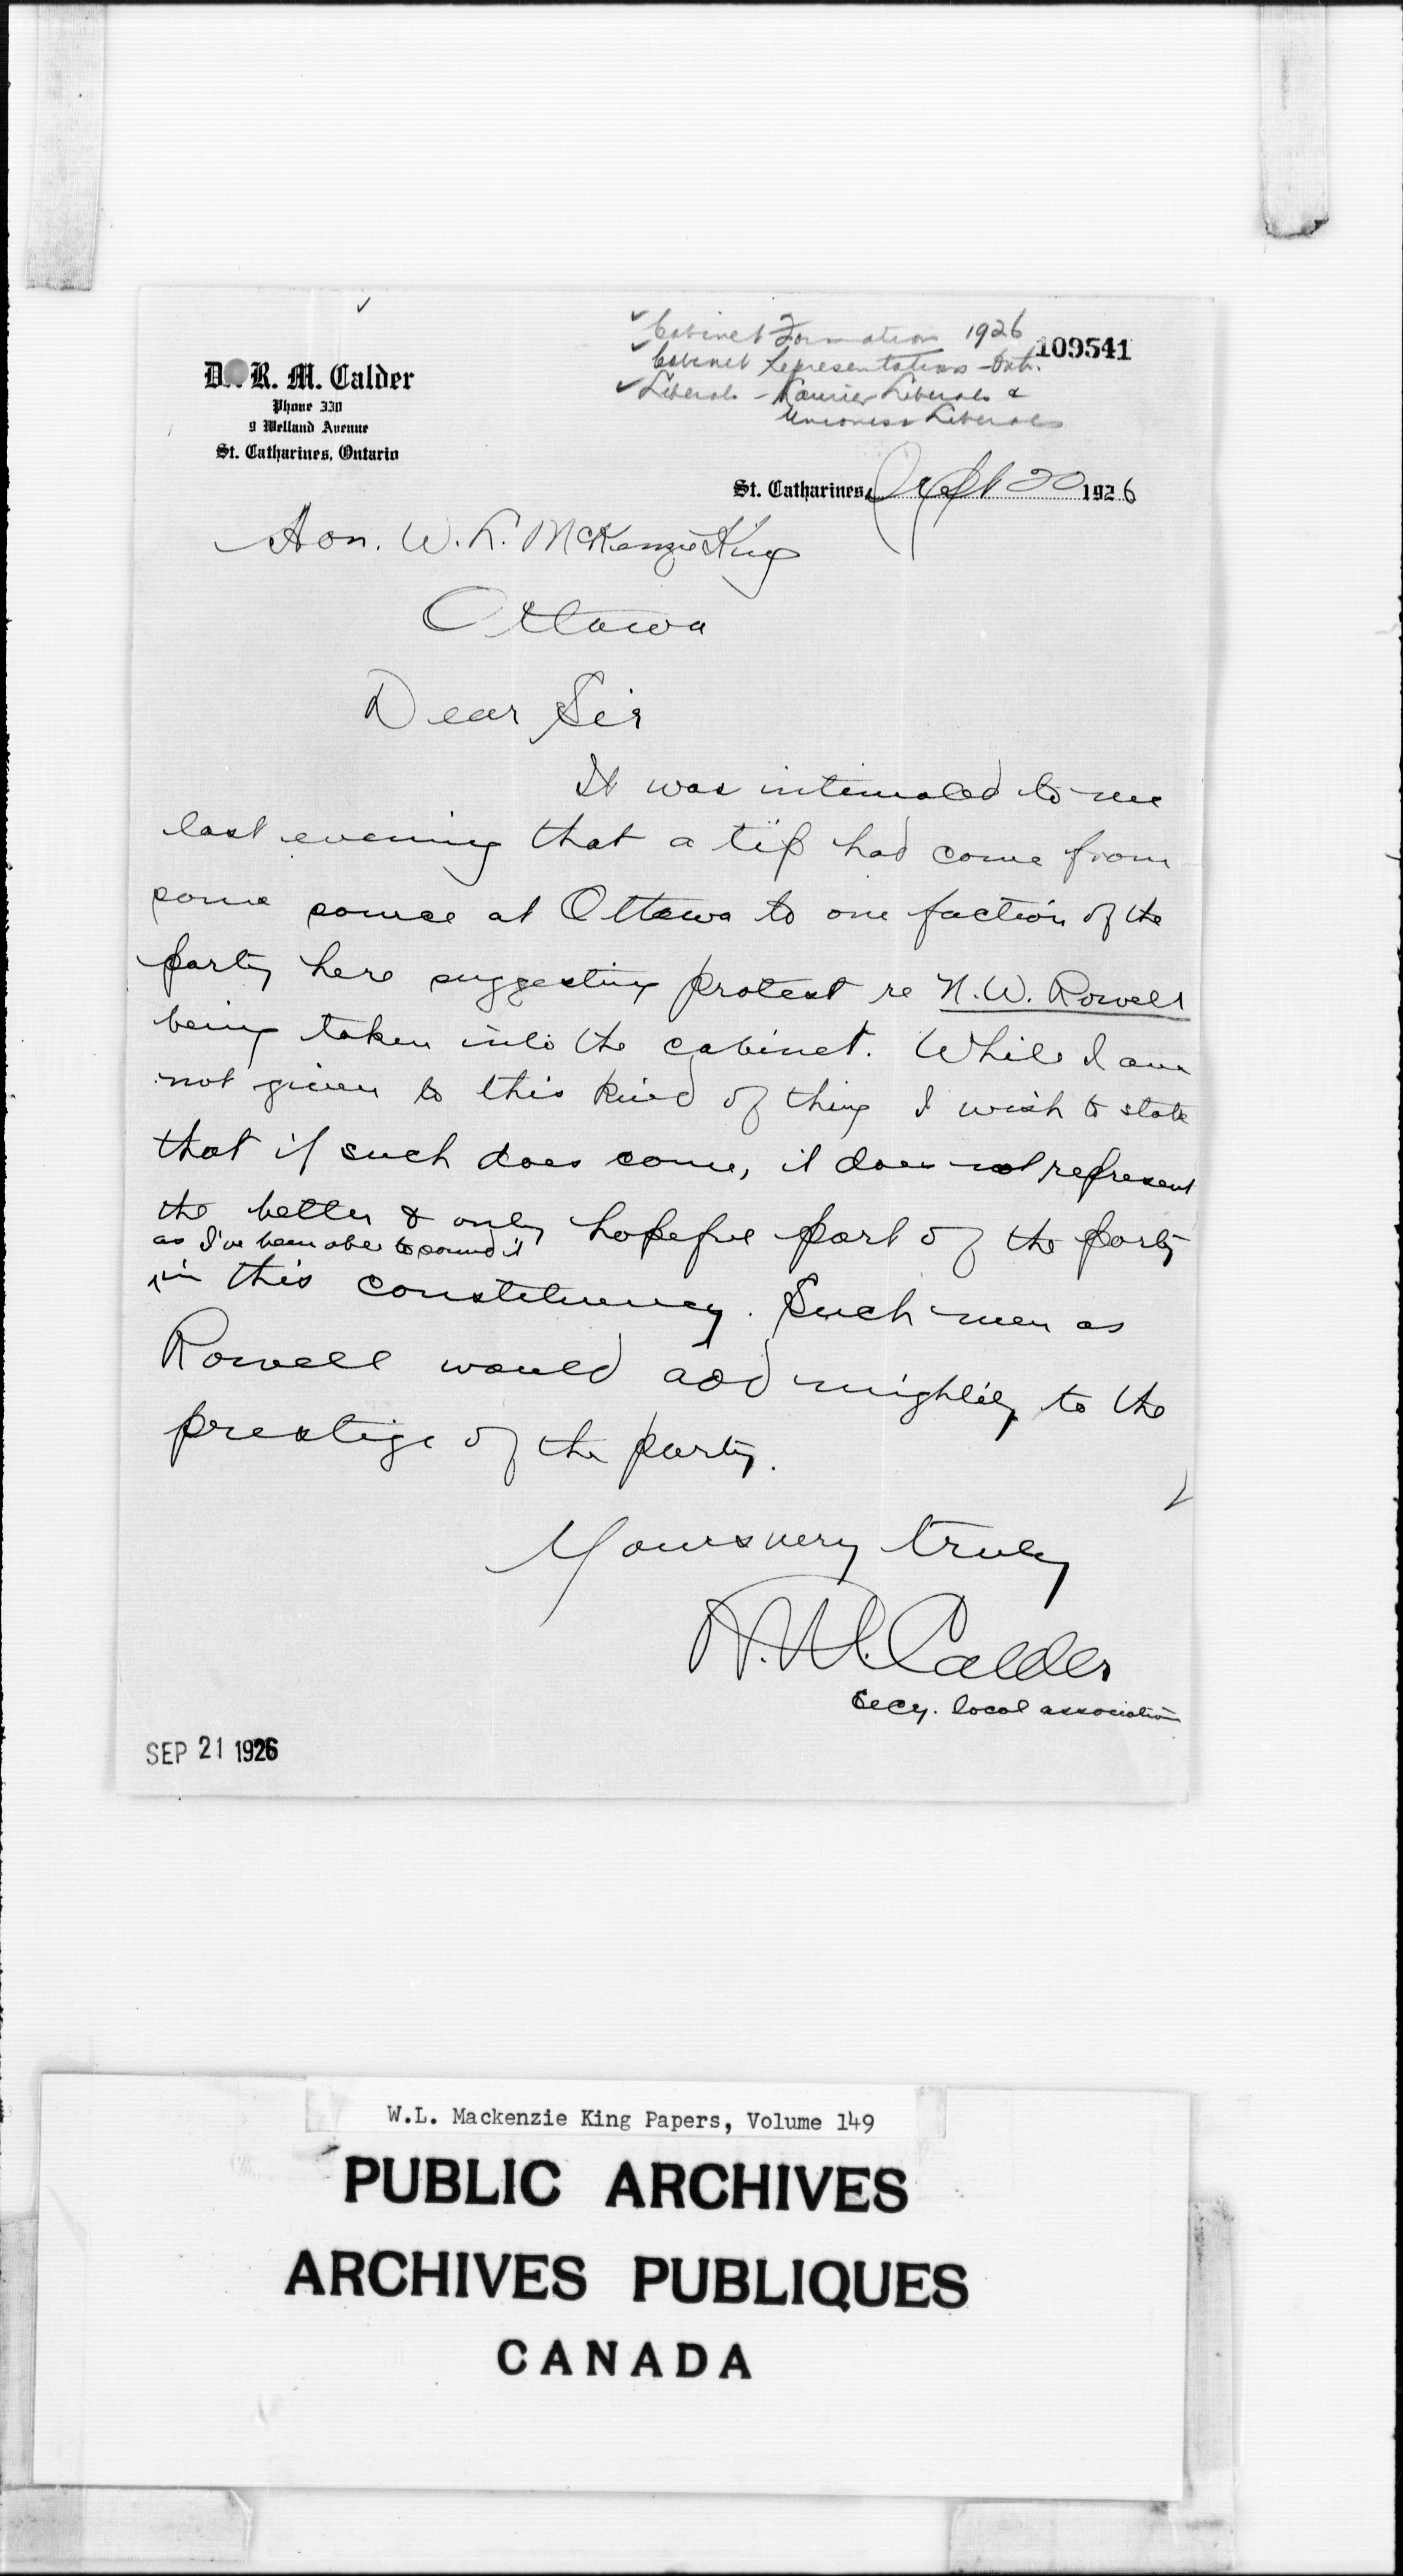 Cabinet Formation 1926
109541
Cabinet Representation - Ont.
Liberals - Laurier Liberals &
Unionist Liberals
Dr. R. M. Calder
Phone 330
9 Welland Avenue
St. Catharines, Ontario
St. Catharines, Sept 20 1926
Hon. W. L. McKenzie King
Ottawa
Dear Sir
It was intimated to me
last evening that a tip had come from
some source at Ottawa to one faction of the
party here suggesting protest re N. W. Rowell
being taken into the cabinet. While I am
not given to this kind of thing I wish to state
that if such does come, it does not represent
the better & only hopeful part of the party
as I've been able to sound it
in this constituency. Such men as
Rowell would add mightily to the
prestige of the party.
Yours very truly
R. M. Calder
Secy. local association
SEP 21 1926
W.L. Mackenzie King Papers, Volume 149
PUBLIC ARCHIVES
ARCHIVES PUBLIQUES
CANADA